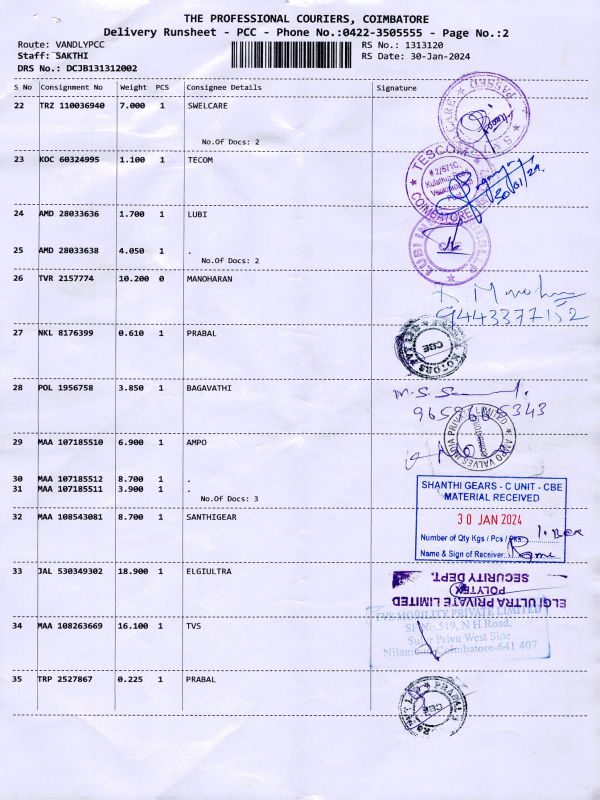 THE PROFESSIONAL COURIERS, COIMBATORE
Delivery Runsheet - PCC - Phone No.:0422-3505555 - Page No.:2
Route: VANDLYPCC
RS No.: 1313120
Staff: SAKTHI
RS Date: 30-Jan-2024
DRS No.: DCJB131312002
S No Consignment No Weight PCS Consignee Details Signature
22 TRZ 110036940 7.000 1 SWELCARE
No.Of Docs: 2
23 KOC 60324995 1.100 1 TECOM
TESCOM
#2/571C,
COIMBATORE
30/01/24.
24 AMD 28033636 1.700 1 LUBI
25 AMD 28033638 4.050 1 .
No.Of Docs: 2
LUBI
CBE
26 TVR 2157774 10.200 0 MANOHARAN
9443377152
27 NKL 8176399 0.610 1 PRABAL
MOTORS PVT LTD
CBE
28 POL 1956758 3.850 1 BAGAVATHI
9659665343
29 MAA 107185510 6.900 1 AMPO
AMPO VALVES INDIA PRIVATE LIMITED
30 MAA 107185512 8.700 1 .
31 MAA 107185511 3.900 1 .
No.Of Docs: 3
32 MAA 108543081 8.700 1 SANTHIGEAR
SHANTHI GEARS - C UNIT - CBE
MATERIAL RECEIVED
30 JAN 2024
Number of Qty Kgs / Pcs / Pks. 1. Box
Name & Sign of Receiver
33 JAL 530349302 18.900 1 ELGIULTRA
ELGI ULTRA PRIVATE LIMITED
POLYTEK
SECURITY DEPT.
34 MAA 108263669 16.100 1 TVS
TVS MOBILITY PRIVATE LIMITED
SF No.519, N H Road,
Coimbatore-641 407
35 TRP 2527867 0.225 1 PRABAL
PRABAL
CBE